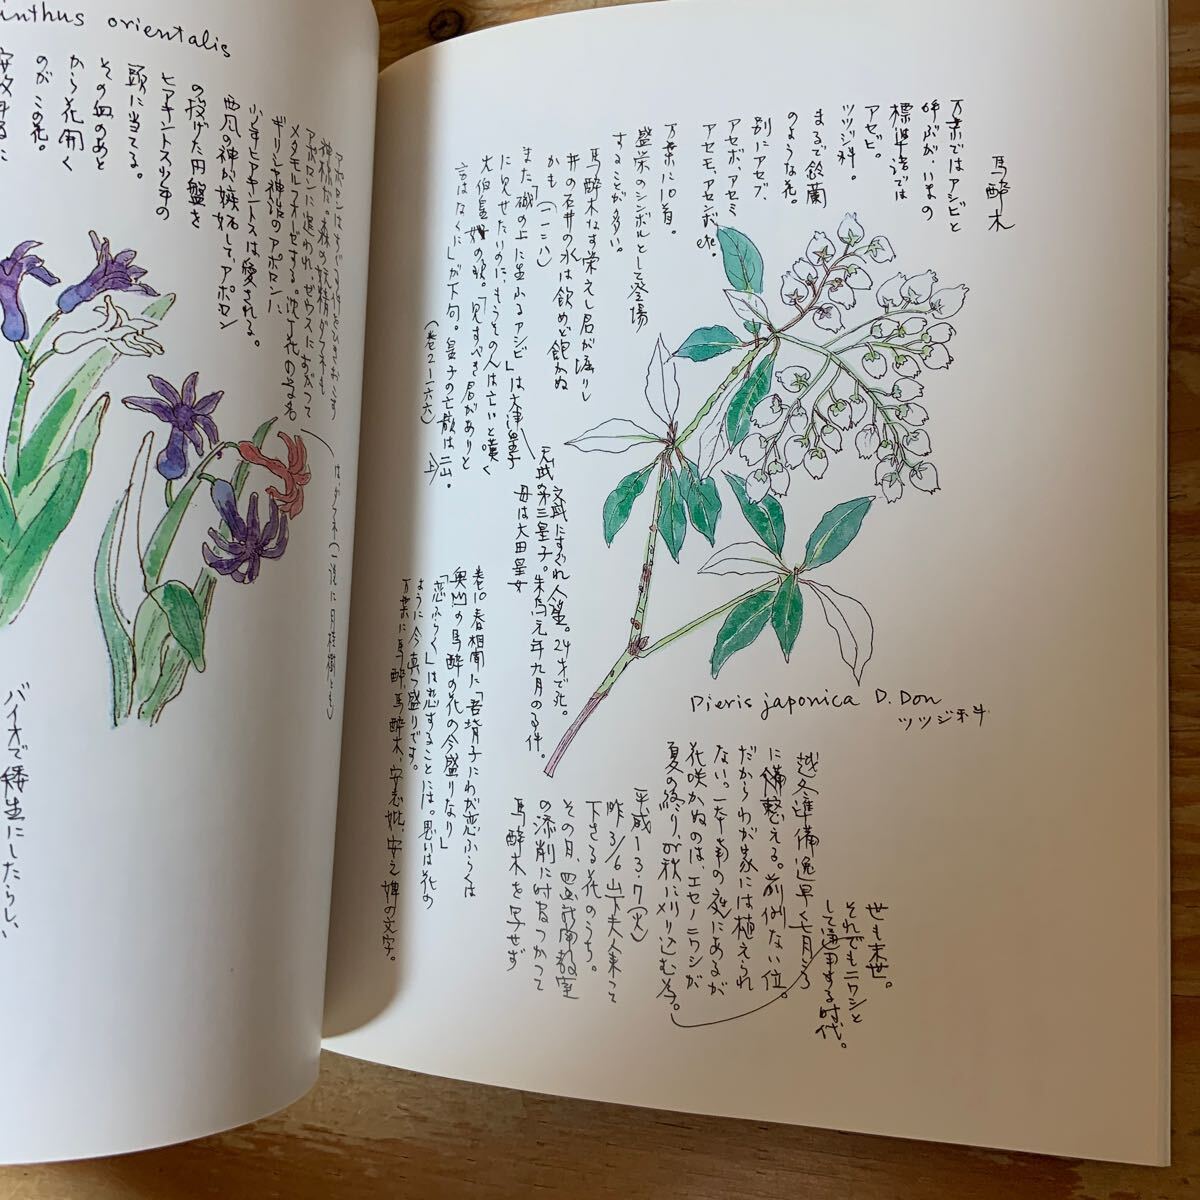 馬酔木
万葉ではアシビと
呼ぶが、いまの
標準語では
アセビ。
ツツジ科。
まるで鈴蘭
のような花。
別にアセブ、
アセボ、アセミ
アセモ、アセンボ、etc.
万葉に10首。
盛栄のシンボルとして登場
することが多い。
馬酔木なす栄えし君が堀りし
井の石井の水は飲めど飽かぬ
かも
また、「磯の上に生ふるアシビ」は大津皇子
に見せたりのに、もうその人は亡いと嘆く
大伯皇女の歌。「見すべき君がありと
言はなくに」が下句。皇子の亡骸は二上山。
(巻2—一六六)
文武にすぐれ人望。24才で死。
天武第三皇子。朱鳥元年九月の事件。
母は大田皇女
巻10.春相聞に「吾背子にわが恋ふらくは
奥山の馬酔の花の今盛りなり」
「恋ふらく」は恋することには。思いは花の
ように今真っ盛りです。
万葉に馬酔、馬酔木、安志妣、安之婢の文字。
Pieris japonica D. Don
ツツジ科
越冬準備逸早く七月ころ
に備整える。前例ない位。
だからわが家には植えられ
ない。一本南の庭にあるが
花咲かぬのは、エセノニワシが
夏の終り、が秋にハリ込む為。
世も末世。
それでもニワシと
して通用する時代。
平成13.7(火)
昨3/6 山下夫人来って
下さる花のうち。
その日、四
の添削に時間つかって
馬酔木を写せず
inthus orientalis
ギリシャ神話のアポロンに
少年ヒアキントスは愛される。
西風の神が嫉妬して、アポロン
の投げた円盤を
ヒアキントス少年の
頭に当てる。
その血のあと
から花開く
のがこの花。
アポロンに追われ、ゼウスにすがって
メタモルフォーゼする。沈丁花の学名
はダフネ(一説に月桂樹とも)
バイオで矮生にしたらしい